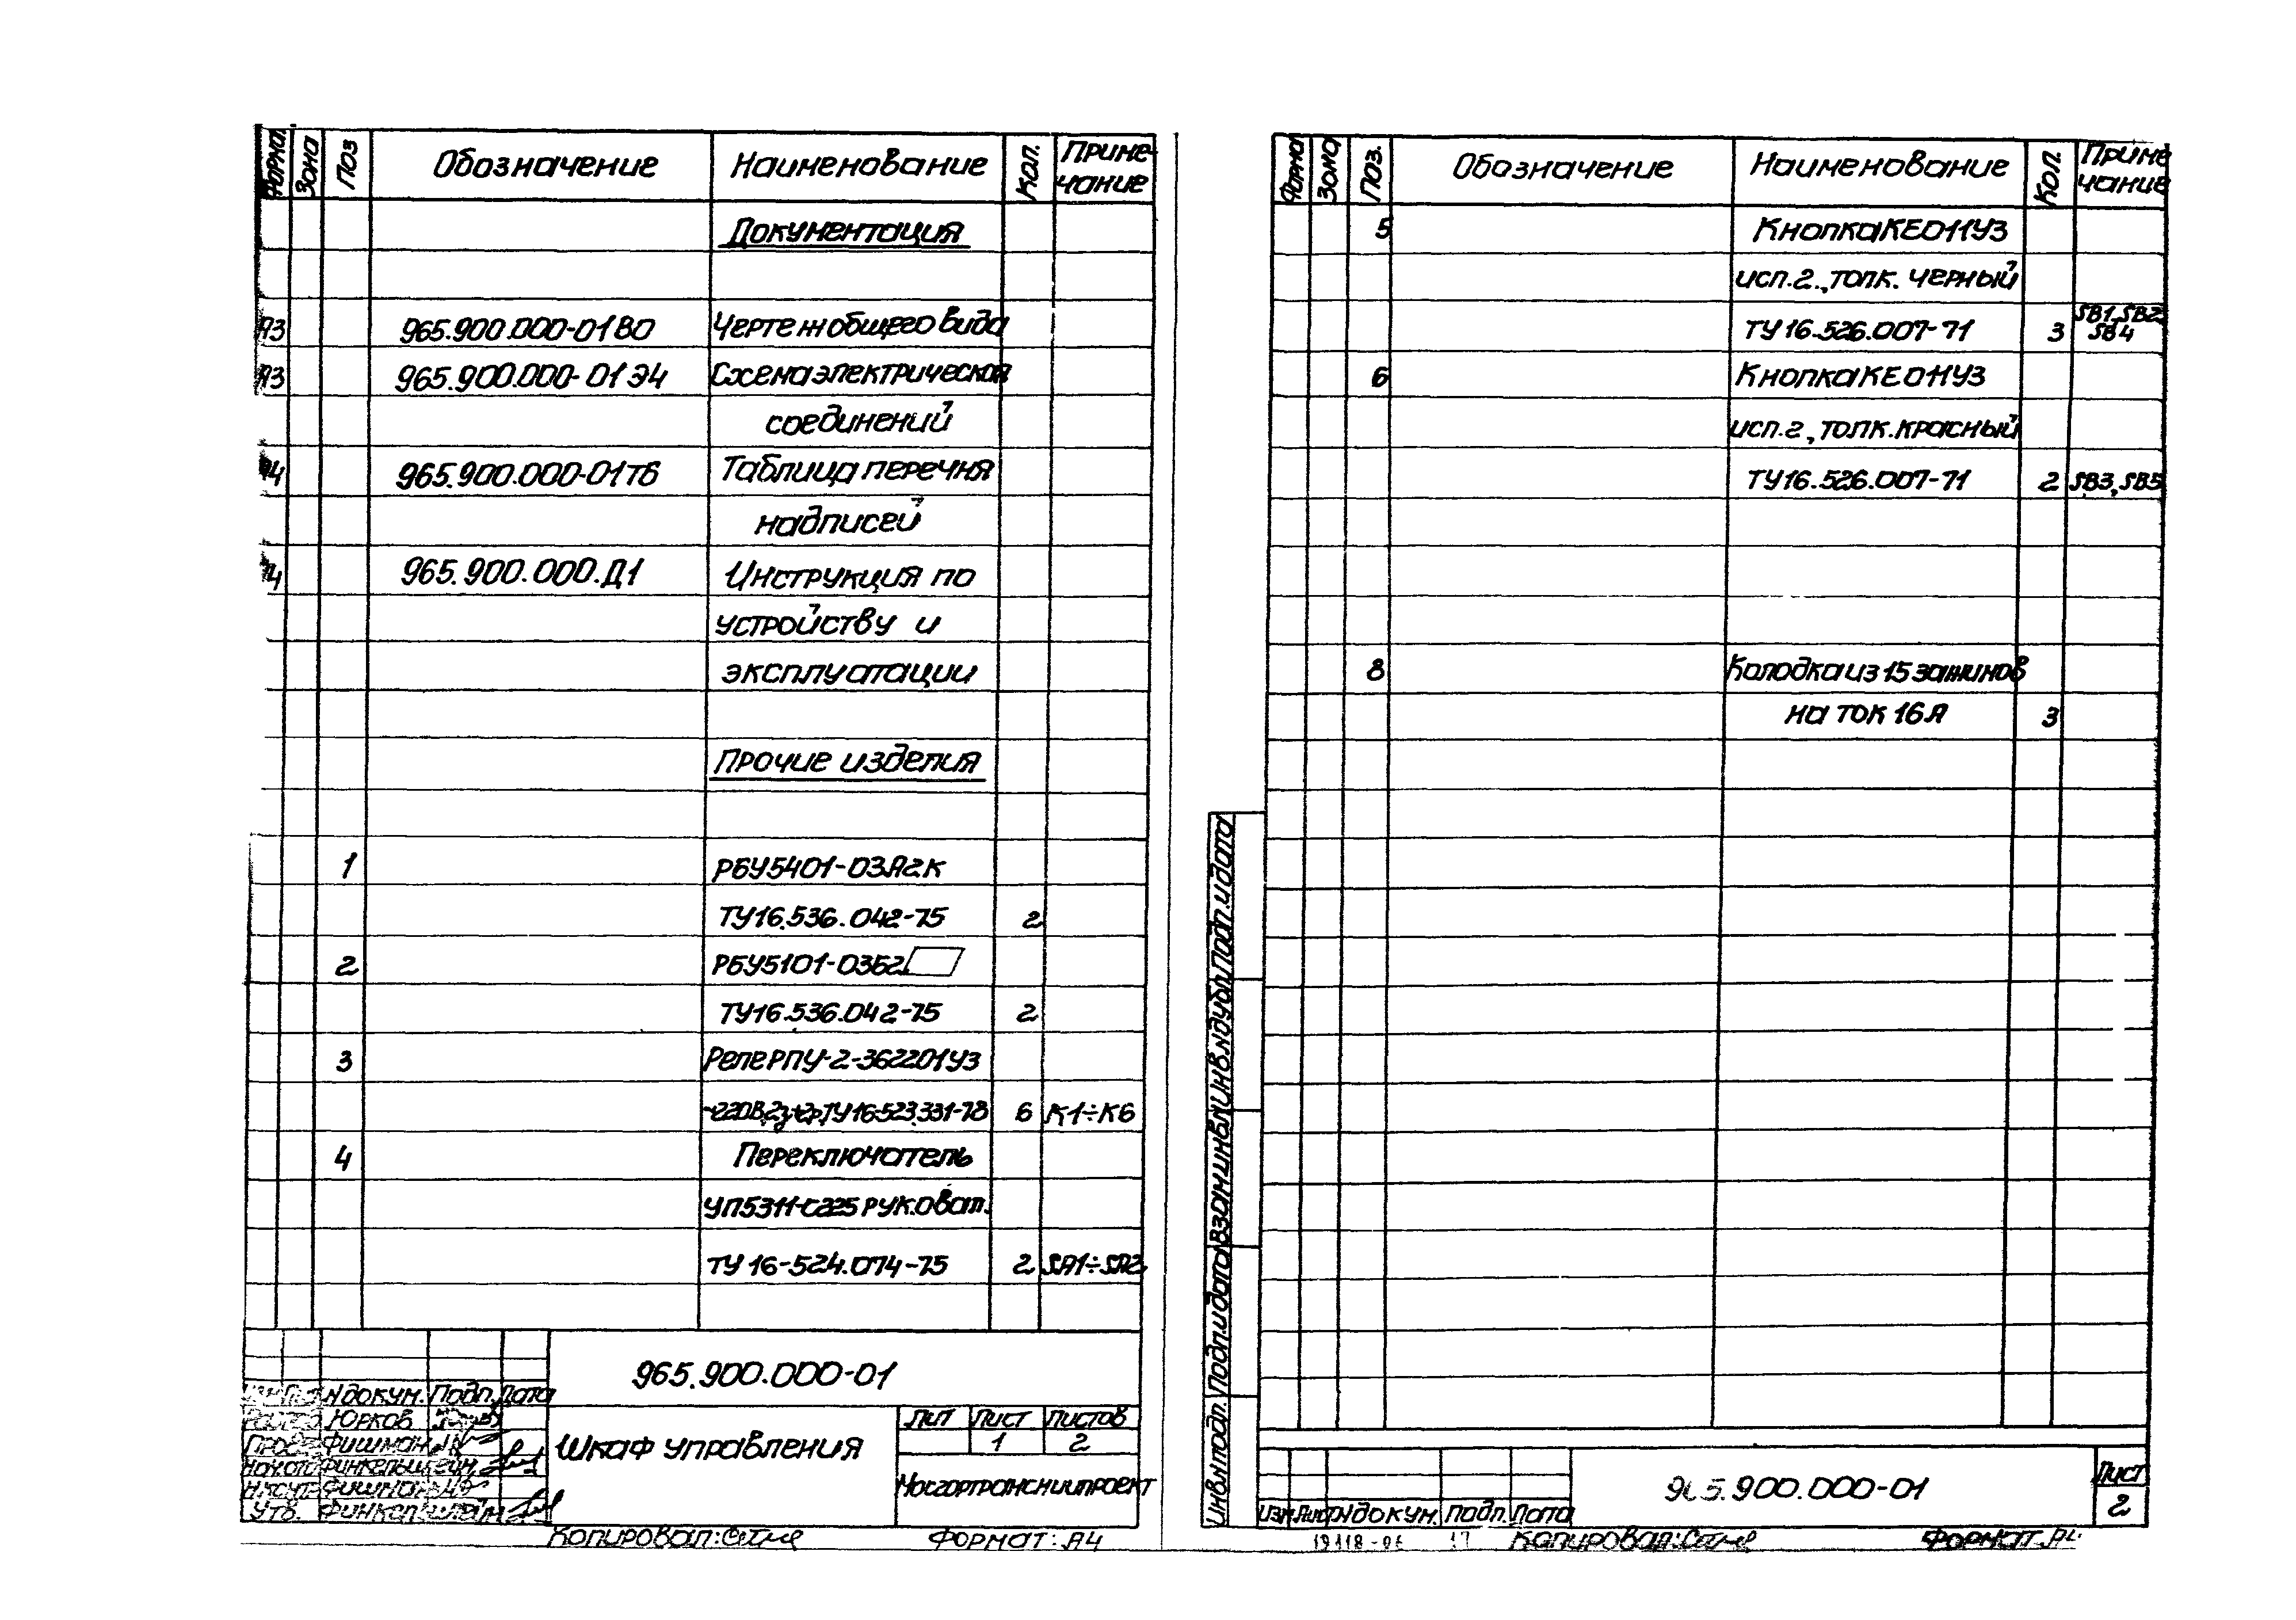 Формат Зона Поз Обозначение Наименование Кол. Приме-
чание
Документация
А3 965.900.000-01 ВО Чертеж общего вида
А3 965.900.000-01 Э4 Схема электрическая
соединений
А4 965.900.000-01 Тб Таблица перечня
надписей
А4 965.900.000.Д1 Инструкция по
устройству и
эксплуатации
Прочие изделия
1 РБУ5401-03А2К
ТУ16.536.042-75 2
2 РБУ5101-03Б2
ТУ16.536.042-75 2
3 Реле РПУ-2-362201У3
~220В, 2з+2р, ТУ16.523.331-78 6 К1÷К6
4 Переключатель
УП5311-С225 руковат.
ТУ 16-524.074-75 2 SA1÷SA2
965.900.000-01
Изм Лист N докум. Подп. Дата
Юрков
Фишман
Финкельштейн
Фишман
Утв. Финкельштейн
Шкаф управления
Лит Лист Листов
1 2
Мосгортрансниипроект
Копировал: ФОРМАТ: А4
Формат Зона Поз. Обозначение Наименование Кол. Приме
чание
5 Кнопка КЕ011У3
исп.2., толк. черный
ТУ 16.526.007-71 3 SB1, SB2,
SB4
6 Кнопка КЕ011У3
исп.2, толк. красный
ТУ 16.526.007-71 2 SB3, SB5
8 Колодка из 15 зажимов
на ток 16А 3
Инв.N подл. Подп. и дата Взам.инв.N Инв.N дубл. Подп. и дата
Изм Лист N докум. Подп. Дата
965.900.000-01
Лист
2
Копировал: ФОРМАТ: А4